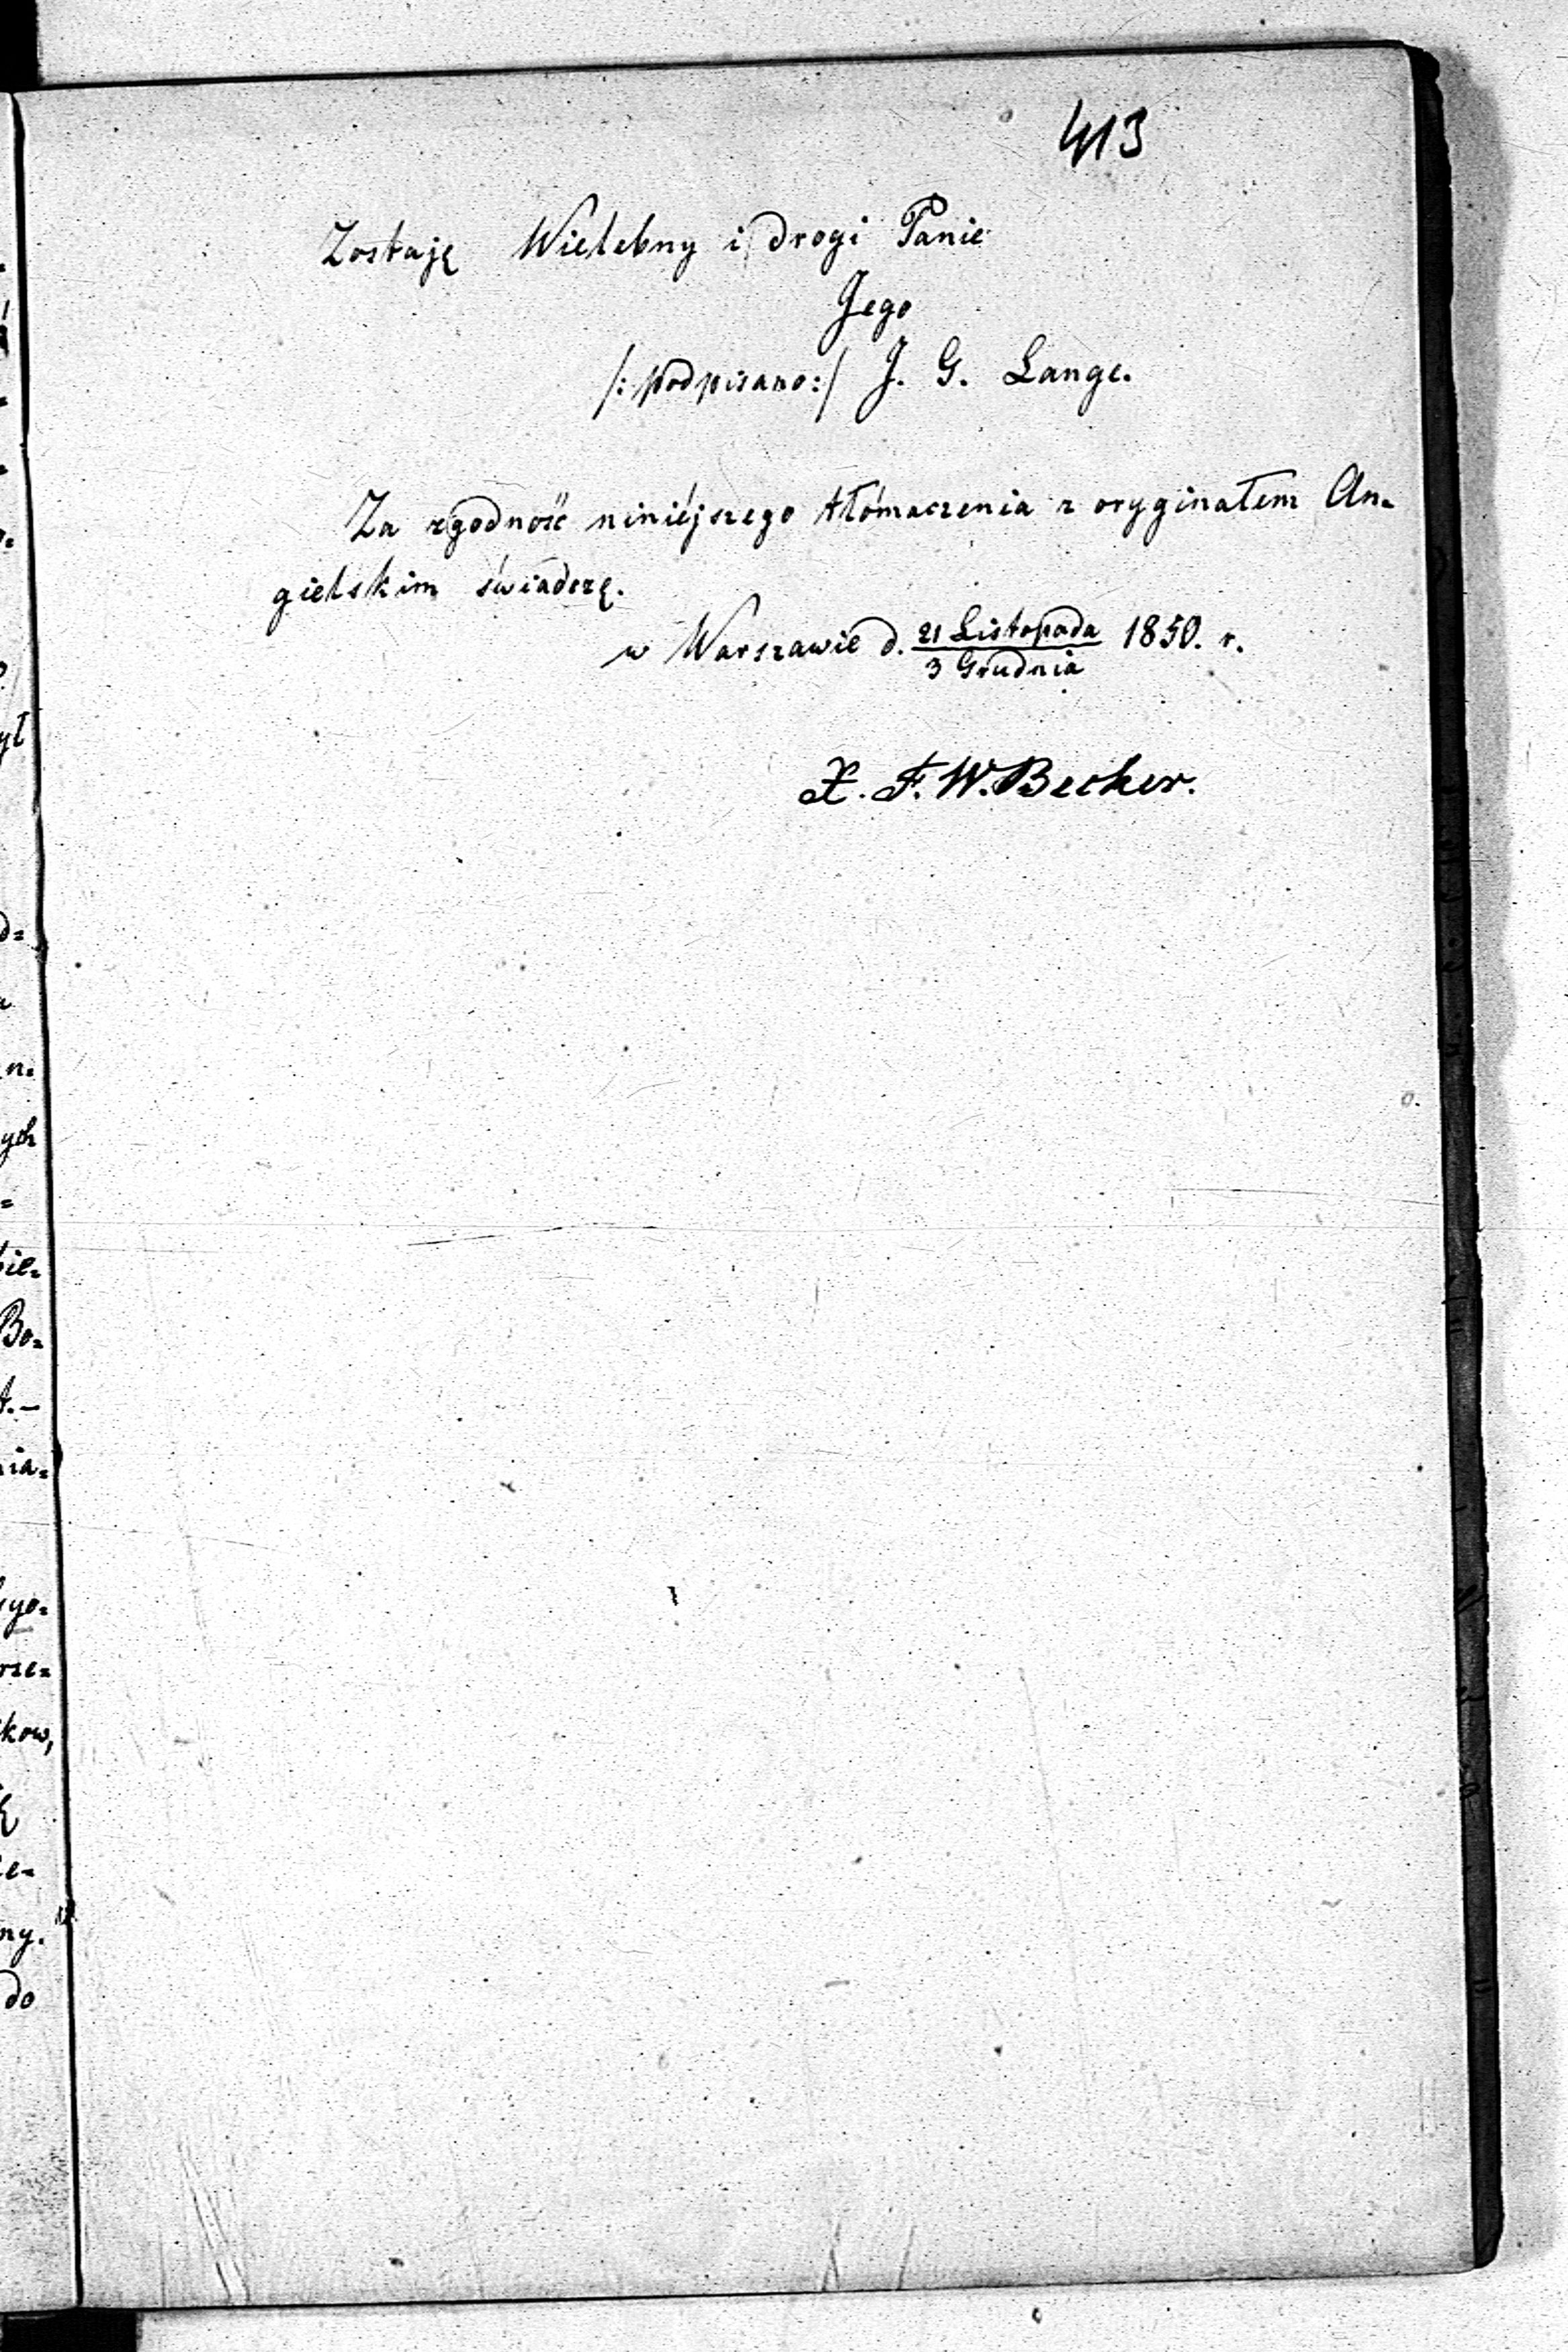 413
Zostaję Wielebny i drogi Panie
Jego
/: podpisano :/ J. G. Lange.
Za zgodność niniéjszego tłómaczenia z oryginałem An=
gielskim świadczę.
w Warszawie d. 21 Listopada / 3 Grudnia 1850. r.
X. F. W. Becker.